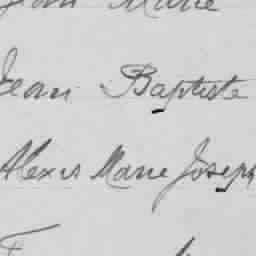 Jean Marie
Jean Baptiste
Alexis Marie Joseph